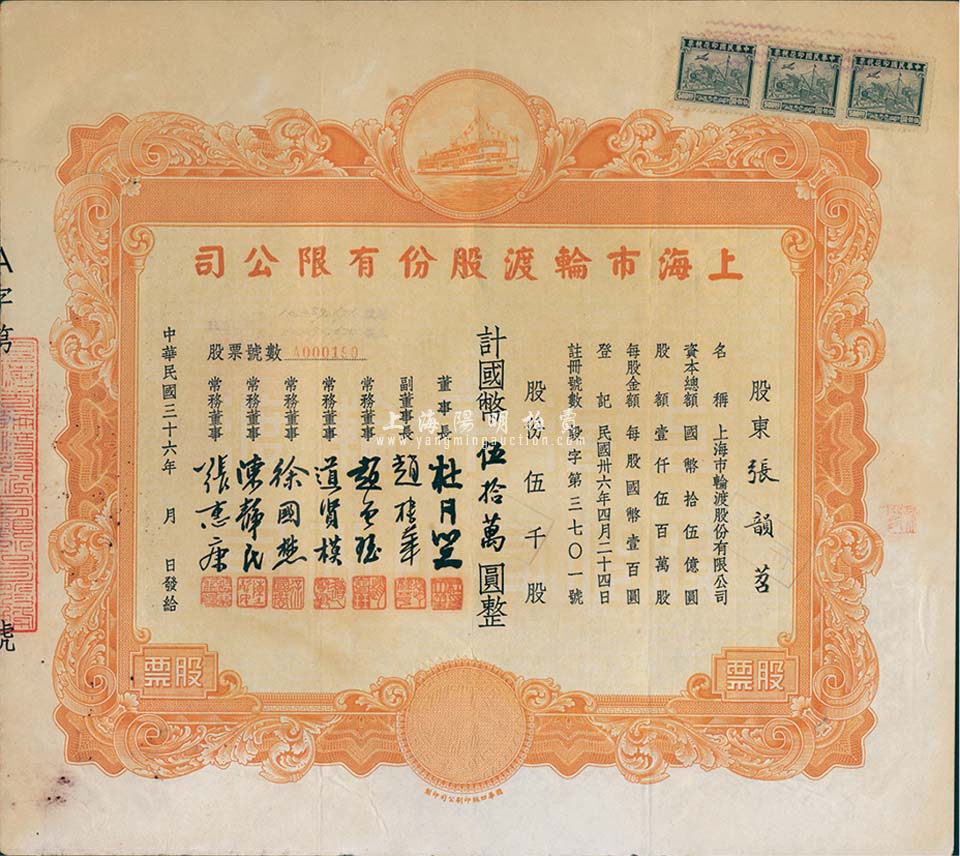 上海市輪渡股份有限公司
股東張韻茗
名稱 上海市輪渡股份有限公司
資本總額 國幣拾伍億圓
股額 壹仟伍百萬股
每股金額 每股國幣壹百圓
登記 民國卅六年四月二十四日
註冊號數 設字第三七〇一號
股份伍千股
計國幣伍拾萬圓整
董事長 杜月笙
副董事長 趙棣華
常務董事
常務董事
常務董事 徐國懋
常務董事 陳靜民
常務董事 張惠康
股票號數 A000190
中華民國三十六年 月 日發給
股票
股票
A字第
號
上海陽明拍賣
www.yangmingauction.com